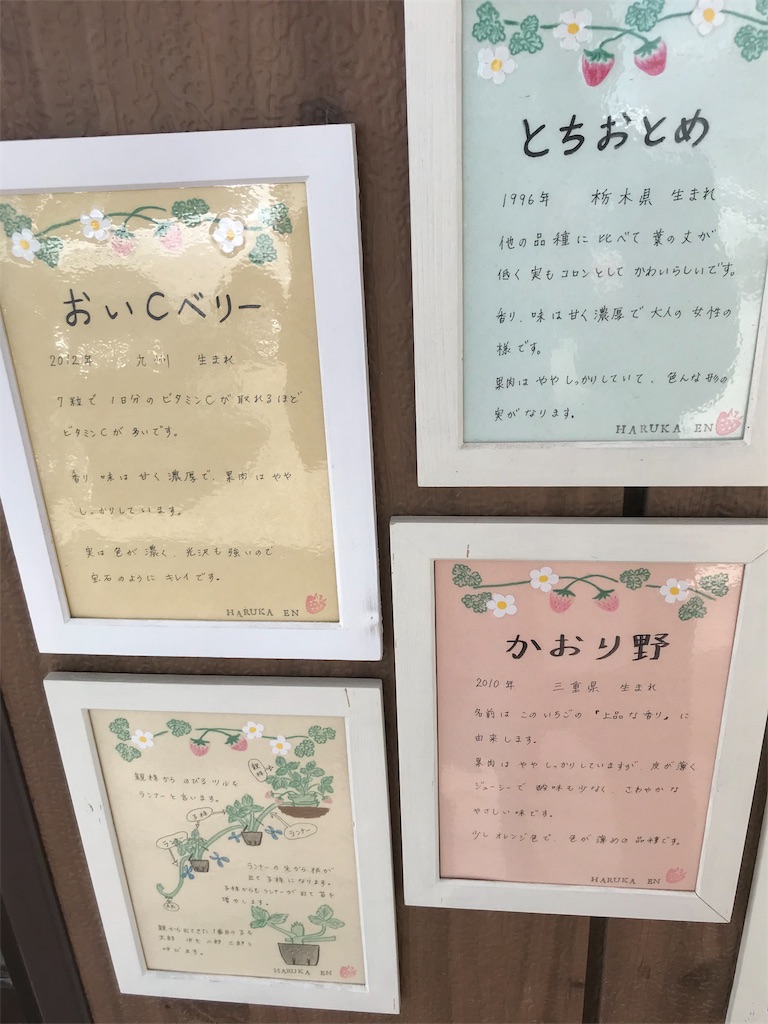 とちおとめ
1996年 栃木県 生まれ
他の品種に比べて葉の丈が
低く実もコロンとしてかわいらしいです。
香り、味は甘く濃厚で大人の女性の
様です。
果肉はややしっかりしていて、色んな形の
実がなります。
HARUKA EN
おいCベリー
2012年 九州 生まれ
7粒で1日分のビタミンCが取れるほど
ビタミンCが多いです。
香り 味は甘く濃厚で、果肉はやや
しっかりしています。
実は色が濃く、光沢も強いので
宝石のようにキレイです。
HARUKA EN
かおり野
2010年 三重県 生まれ
名前はこのいちごの『上品な香り』に
由来します。
果肉はややしっかりしていますが、皮が薄く
ジューシーで酸味も少なく、さわやかな
やさしい味です。
少しオレンジ色で、色が薄めの品種です。
HARUKA EN
親株からのびるツルを
ランナーと言います。
親株
子株
ランナー
ランナーの先から根が
出て子株になります。
子株からもランナーが出て苗を
増やします。
親から出てきた1番目の苗を
太郎 次々に次郎 三郎と
呼びます。
HARUKA EN